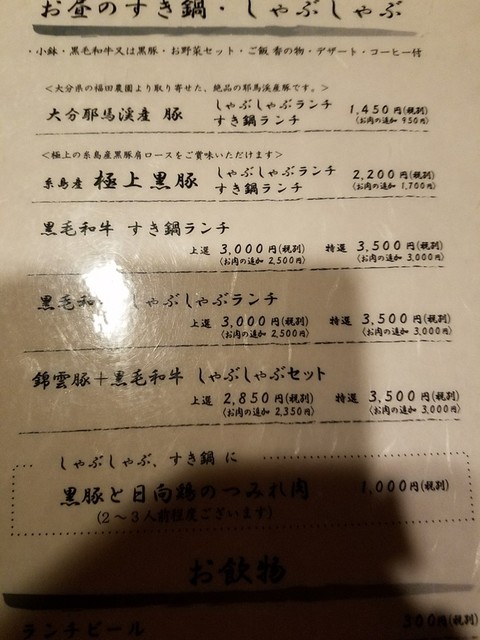 お昼のすき鍋・しゃぶしゃぶ
・小鉢・黒毛和牛又は黒豚・お野菜セット・ご飯 香の物・デザート・コーヒー付
＜大分県の福田農園より取り寄せた、絶品の耶馬渓産豚です。＞
大分耶馬渓産 豚 しゃぶしゃぶランチ 1,450円(税別)
すき鍋ランチ (お肉の追加 950円)
＜極上の糸島産黒豚肩ロースをご賞味いただけます＞
糸島産 極上黒豚 しゃぶしゃぶランチ 2,200円(税別)
すき鍋ランチ (お肉の追加 1,700円)
黒毛和牛 すき鍋ランチ
上選 3,000円(税別) 特選 3,500円(税別)
(お肉の追加 2,500円) (お肉の追加 3,000円)
黒毛和 しゃぶしゃぶランチ
上選 3,000円(税別) 特選 3,500円(税別)
(お肉の追加 2,500円) (お肉の追加 3,000円)
錦雲豚＋黒毛和牛 しゃぶしゃぶセット
上選 2,850円(税別) 特選 3,500円(税別)
(お肉の追加 2,350円) (お肉の追加 3,000円)
しゃぶしゃぶ、すき鍋 に
黒豚と日向鶏のつみれ肉 1,000円(税別)
(2～3人前程度ございます)
お飲物
ランチビール 300円(税別)